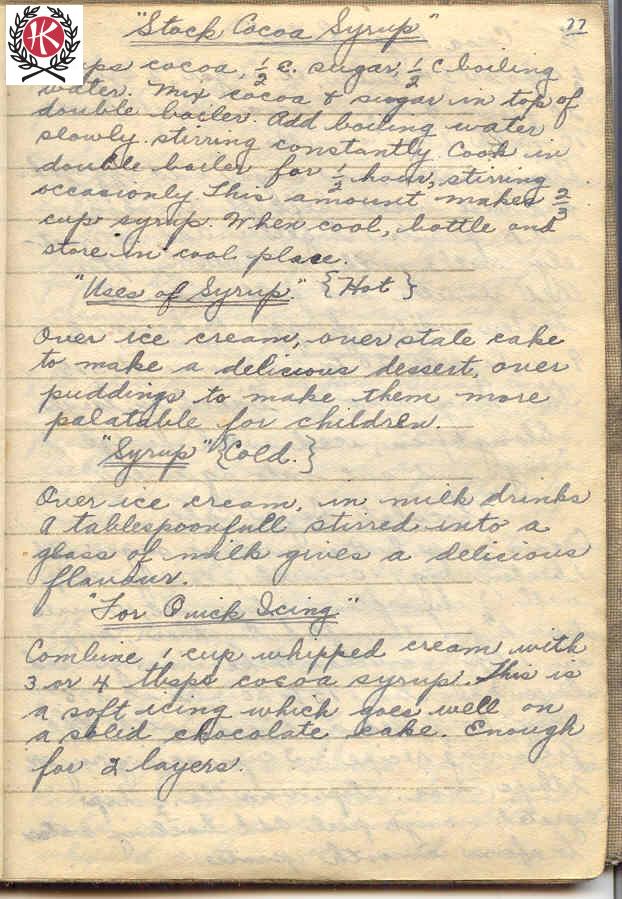 "Stock Cocoa Syrup"
77
HK
cocoa, ½ c. sugar, ½ c boiling
water. Mix cocoa & sugar in top of
double boiler. Add boiling water
slowly. stirring constantly. Cook in
double boiler for ½ hour, stirring
occasionly This amount makes ⅔
cup syrup. When cool, bottle and
store in cool place.
"Uses of Syrup." {Hot}
Over ice cream, over stale cake
to make a delicious dessert, over
puddings to make them more
palatable for children.
"Syrup" {Cold.}
Over ice cream, in milk drinks
A tablespoonfull stirred into a
glass of milk gives a delicious
flavour.
"For Quick Icing"
Combine 1 cup whipped cream with
3 or 4 tbsps cocoa syrup. This is
a soft icing which goes well on
a solid chocolate cake. Enough
for 2 layers.